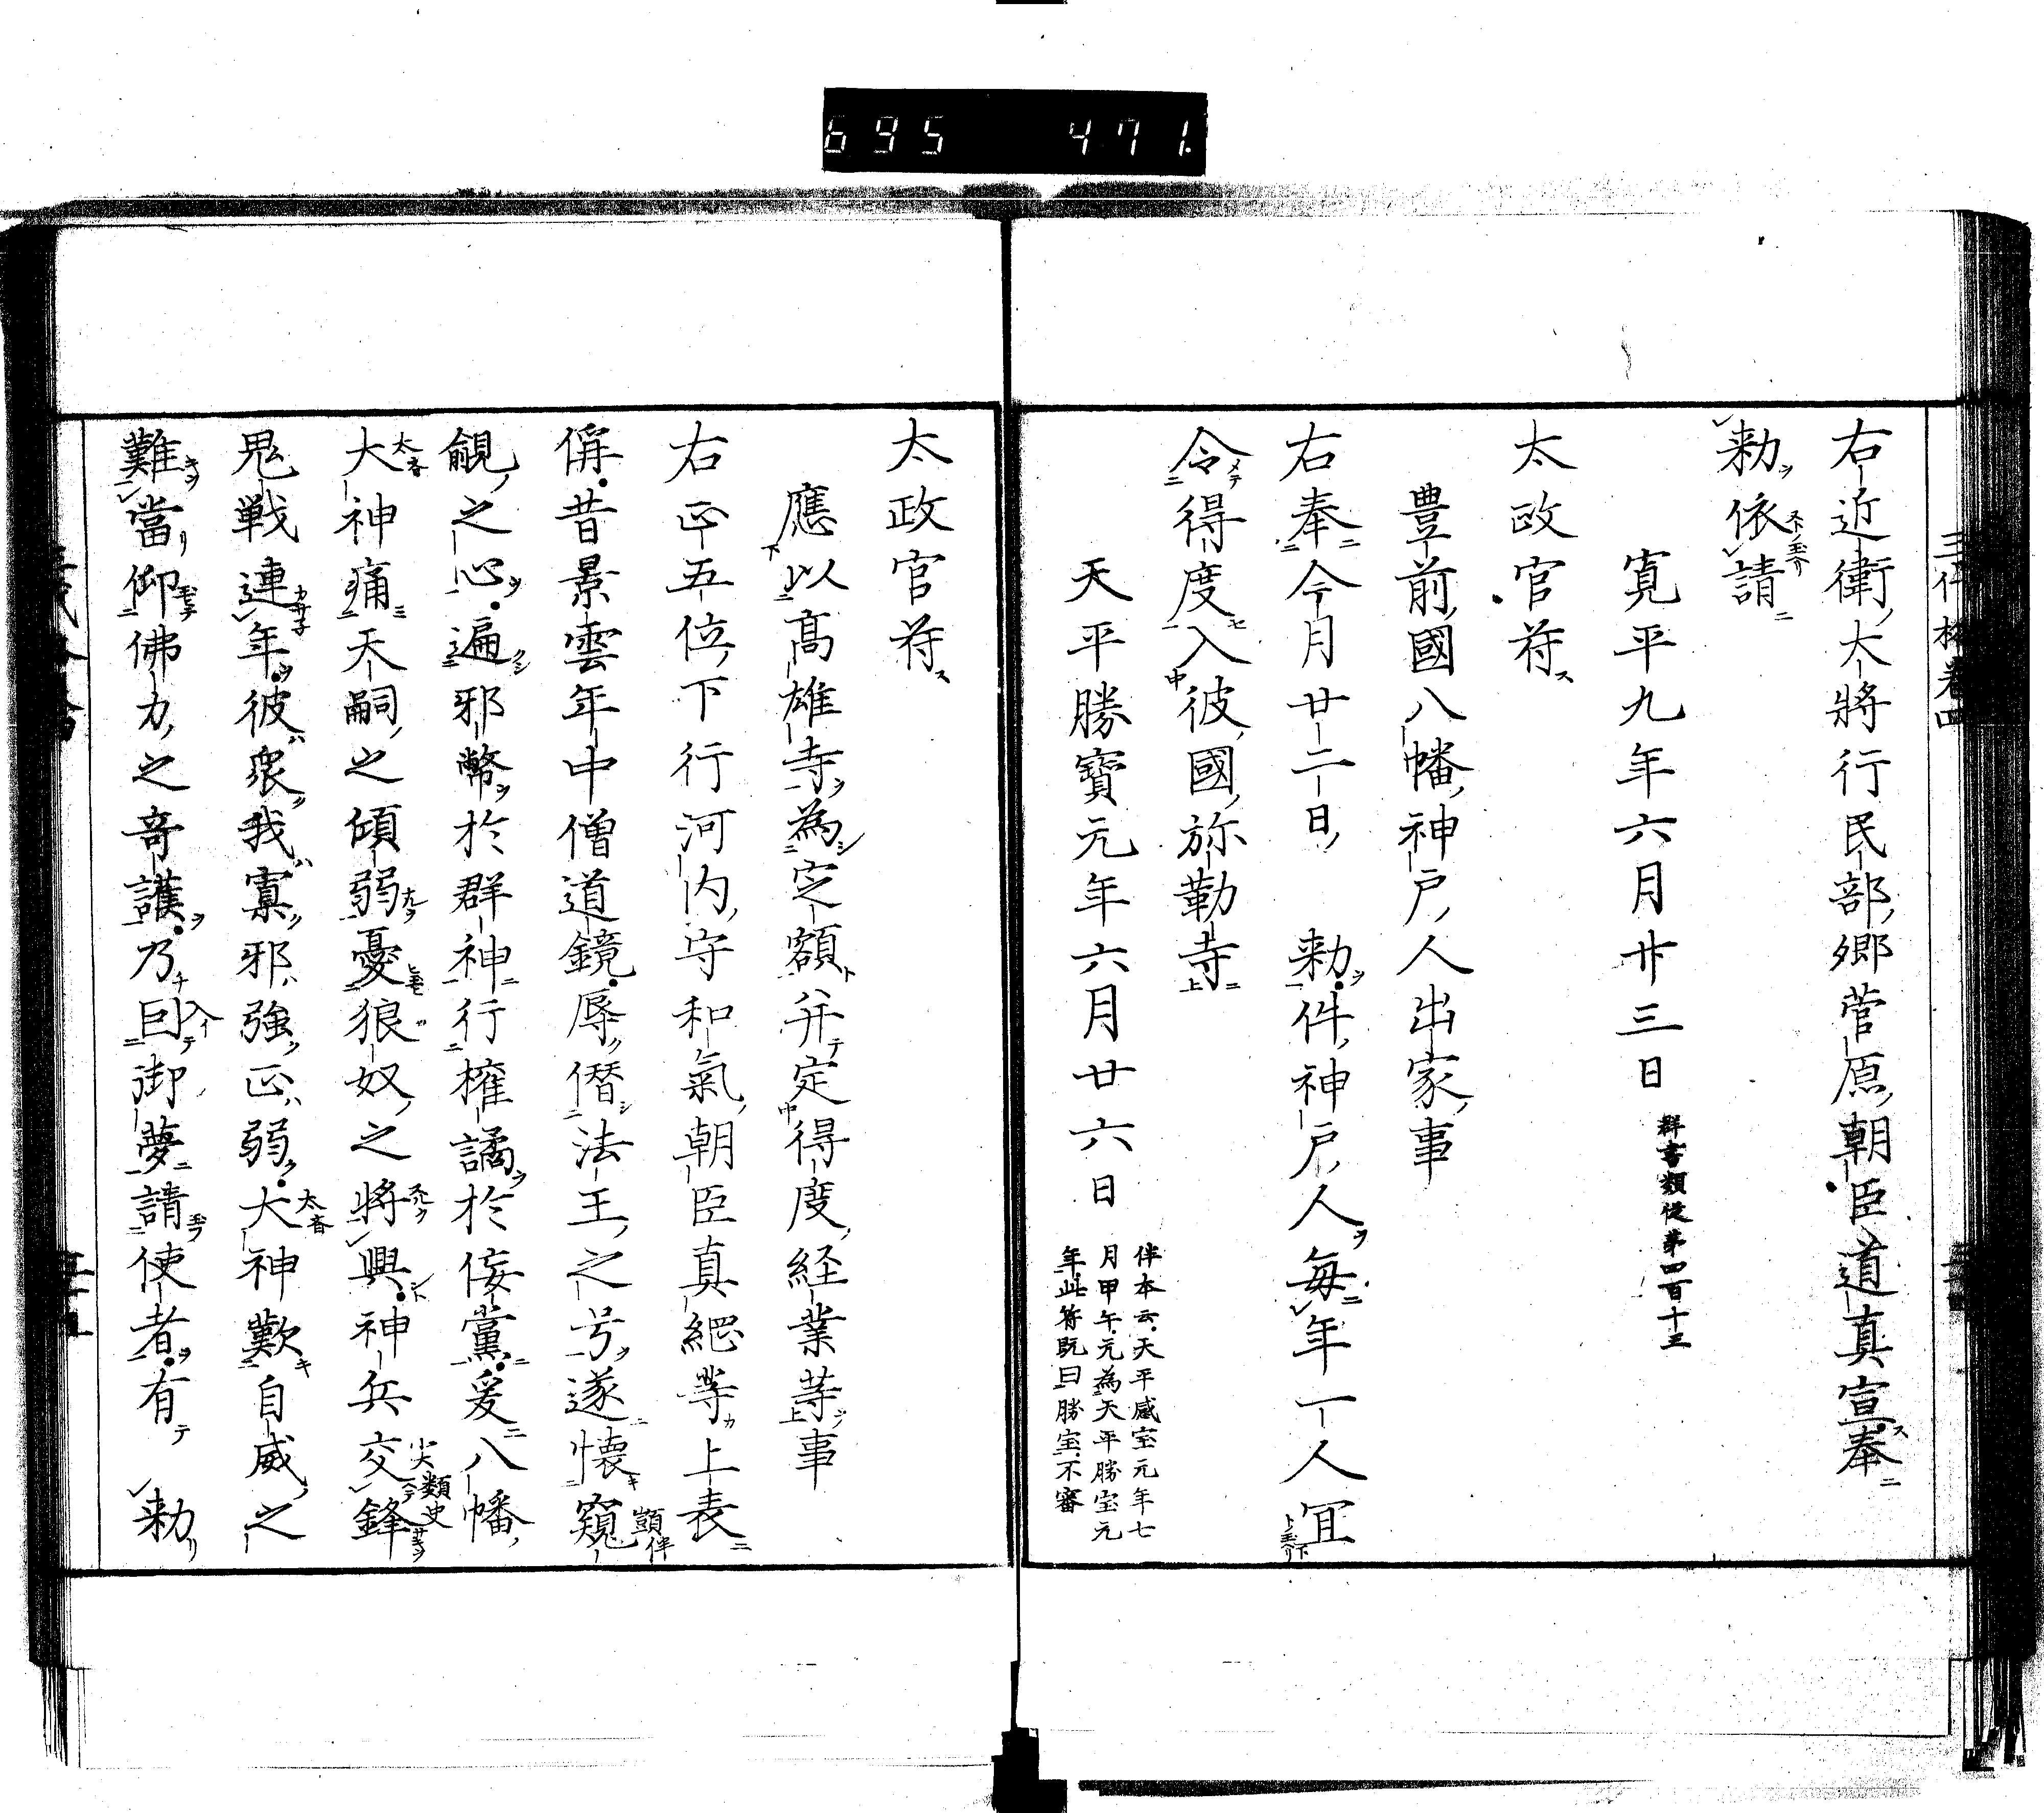 695 471.
右近衛大將行民部郷菅原朝臣道真宣奉
勅依請
寛平九年六月廿三日 群書類従第四百十三
太政官符
豊前國八幡神戸人出家事
右奉今月廿二日 勅件神戸人毎年一人宜
令得度入彼國弥勒寺
天平勝寶元年六月廿六日 伴本云天平感宝元年七
月甲午元為天平勝宝元
年此符既曰勝宝不審
太政官符
應以髙雄寺為定額并定得度経業等事
右正五位下行河内守和氣朝臣真綱等上表
偁昔景雲年中僧道鏡辱僭法王之号遂懐窺
覦之心遍邪幣於群神行權譎於佞黨爰八幡
大神痛天嗣之傾弱憂狼奴之將興神兵交鋒
鬼戦連年彼衆我寡邪強正弱大神歎自威之
難當仰佛力之奇護乃入御夢請使者有 勅